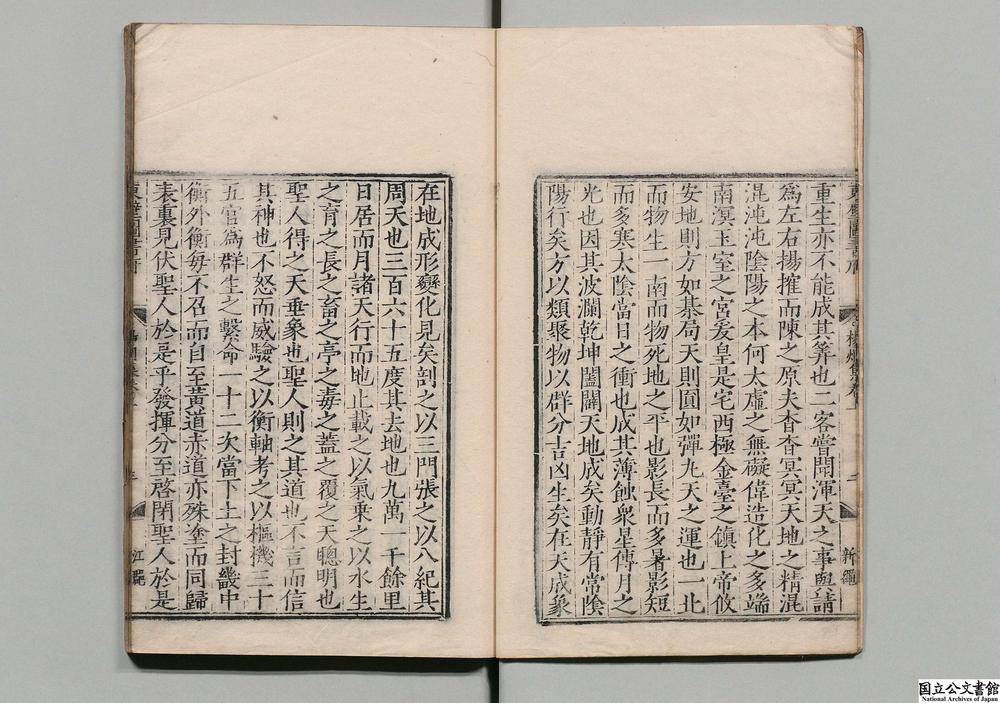 重生亦不能成其筭也二客嘗聞渾天之事歟請
為左右揚搉而陳之原夫杳杳冥冥天地之精混
混沌沌陰陽之本何太虛之無礙偉造化之多端
南溟玉室之宮爰皇是宅西極金臺之鎮上帝攸
安地則方如棊局天則圓如彈丸天之運也一北
而物生一南而物死地之平也影長而多暑影短
而多寒太陰當日之衝也成其薄蝕衆星傅月之
光也因其波瀾乾坤闔闢天地成矣動靜有常陰
陽行矣方以類聚物以群分吉凶生矣在天成象
新
在地成形變化見矣剖之以三門張之以八紀其
周天也三百六十五度其去地也九萬一千餘里
日居而月諸天行而地止載之以氣乘之以水生
之育之長之畜之亭之毒之蓋之覆之天聰明也
聖人得之天垂象也聖人則之其道也不言而信
其神也不怒而威驗之以衡軸考之以樞機三十
五官為群生之繫命一十二次當下上之封畿中
衡外衡每不召而自至黃道赤道亦殊塗而同歸
表裏見伏聖人於是乎發揮分至啓閉聖人於是
東壁圖書府
江
国立公文書館
National Archives of Japan